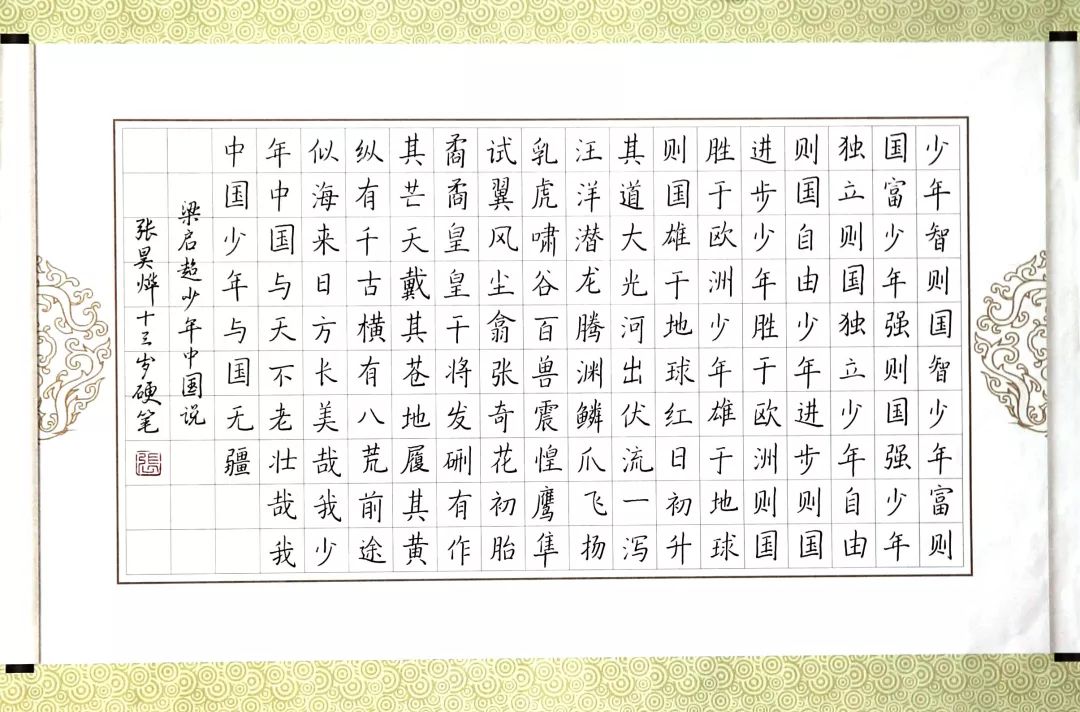 少年智则国智少年富则
国富少年强则国强少年
独立则国独立少年自由
则国自由少年进步则国
进步少年胜于欧洲则国
胜于欧洲少年雄于地球
则国雄于地球红日初升
其道大光河出伏流一泻
汪洋潜龙腾渊鳞爪飞扬
乳虎啸谷百兽震惶鹰隼
试翼风尘翕张奇花初胎
矞矞皇皇干将发硎有作
其芒天戴其苍地履其黄
纵有千古横有八荒前途
似海来日方长美哉我少
年中国与天不老壮哉我
中国少年与国无疆
梁启超少年中国说
张昊烨十三岁硬笔